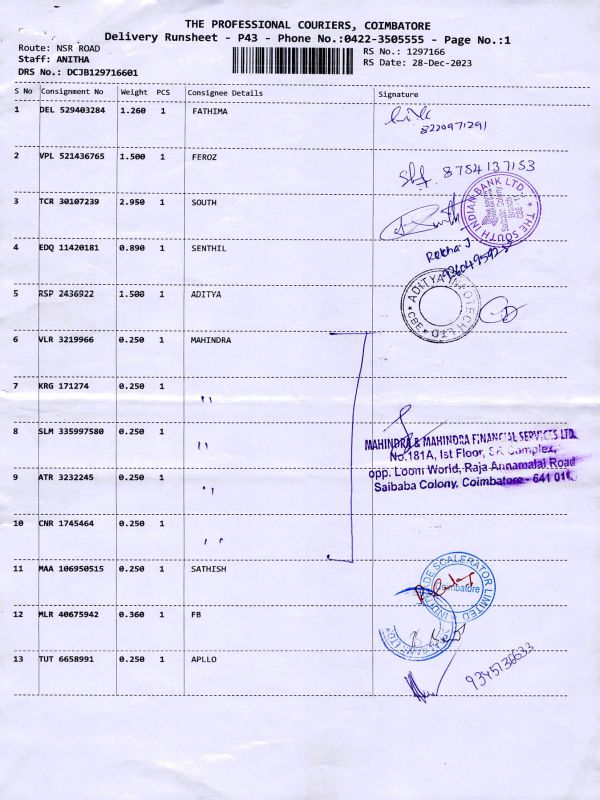 THE PROFESSIONAL COURIERS, COIMBATORE
Delivery Runsheet - P43 - Phone No.:0422-3505555 - Page No.:1
Route: NSR ROAD
Staff: ANITHA
DRS No.: DCJB129716601
RS No.: 1297166
RS Date: 28-Dec-2023
S No Consignment No Weight PCS Consignee Details Signature
1 DEL 529403284 1.260 1 FATHIMA
8220971291
2 VPL 521436765 1.500 1 FEROZ
8754137153
3 TCR 30107239 2.950 1 SOUTH
THE SOUTH INDIAN BANK LTD.
4 EDQ 11420181 0.890 1 SENTHIL
Rekha J
5 RSP 2436922 1.500 1 ADITYA
ADITYA INFOTECH LTD
CBE
6 VLR 3219966 0.250 1 MAHINDRA
7 KRG 171274 0.250 1 "
8 SLM 335997580 0.250 1 "
MAHINDRA & MAHINDRA FINANCIAL SERVICES LTD.
No.181A, Ist Floor, SR Complex,
opp. Loom World, Raja Annamalai Road
Saibaba Colony, Coimbatore - 641 011.
9 ATR 3232245 0.250 1 "
10 CNR 1745464 0.250 1 "
11 MAA 106950515 0.250 1 SATHISH
SCALERATOR LIMITED
Coimbatore
12 MLR 40675942 0.360 1 FB
13 TUT 6658991 0.250 1 APLLO
9345136633